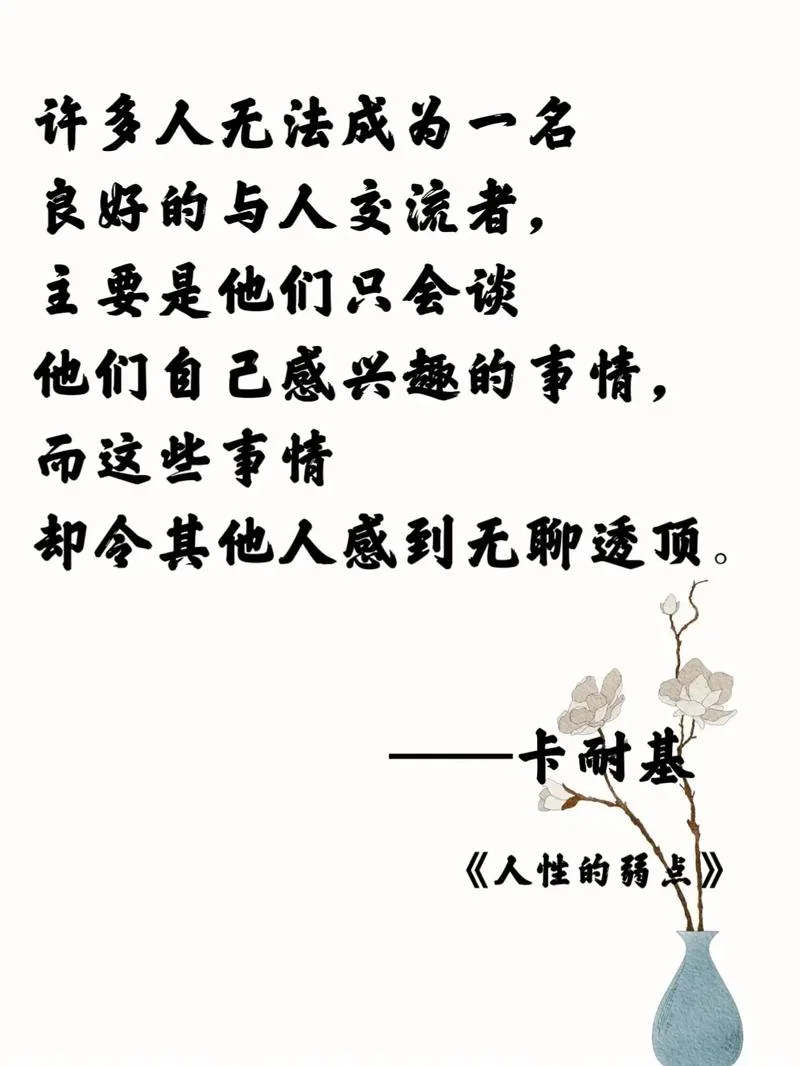 许多人无法成为一名
良好的与人交流者，
主要是他们只会谈
他们自己感兴趣的事情，
而这些事情
却令其他人感到无聊透顶。
——卡耐基
《人性的弱点》